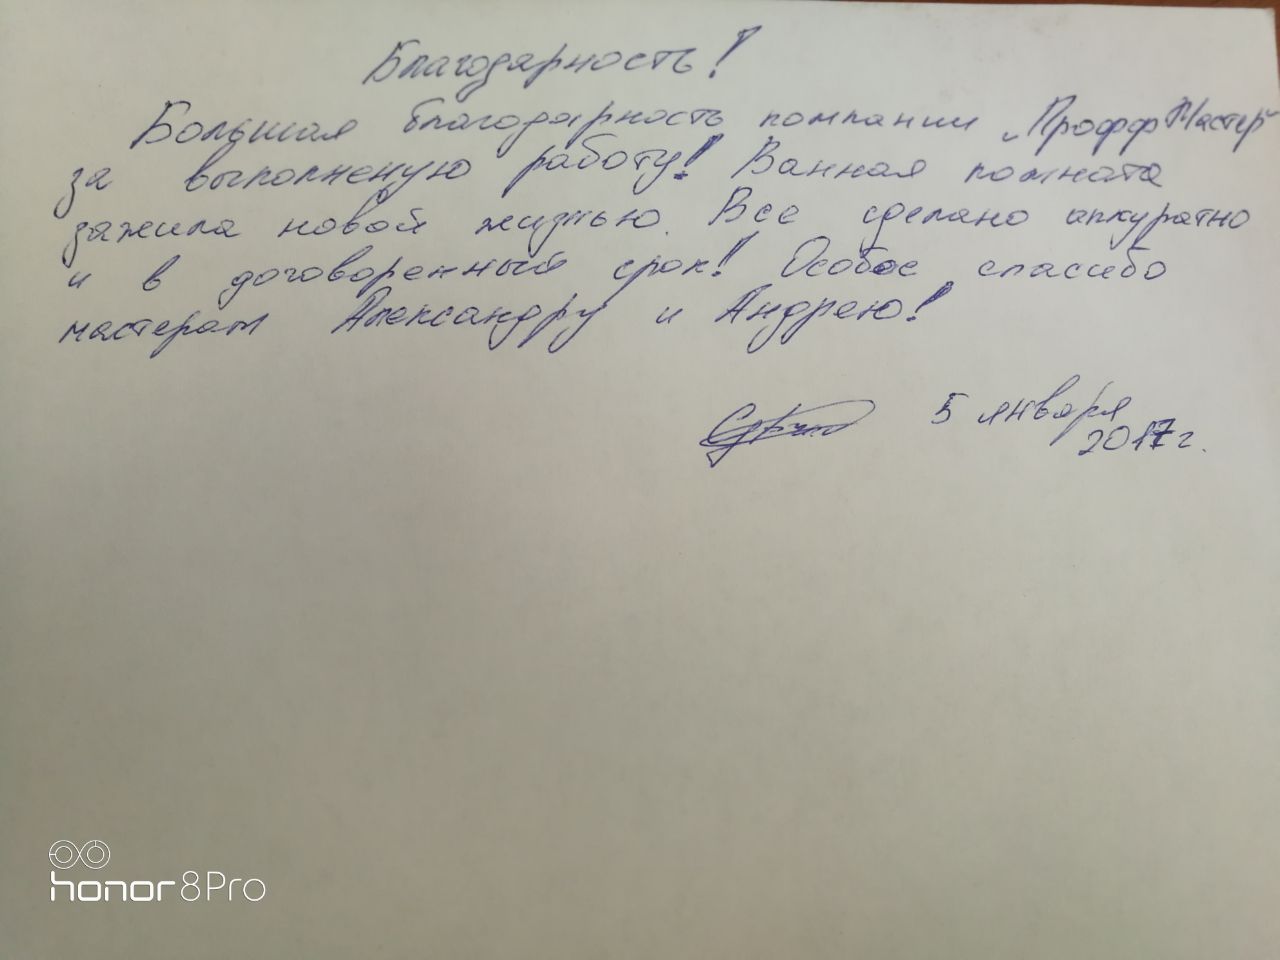 Благодарность!
Большая благодарность компании „Профф Мастер"
за выполненую работу! Ванная комната
зажила новой жизнью. Все сделано аккуратно
и в договоренный срок! Особое спасибо
мастерам Александру и Андрею!
5 января
2017 г.
honor 8 Pro